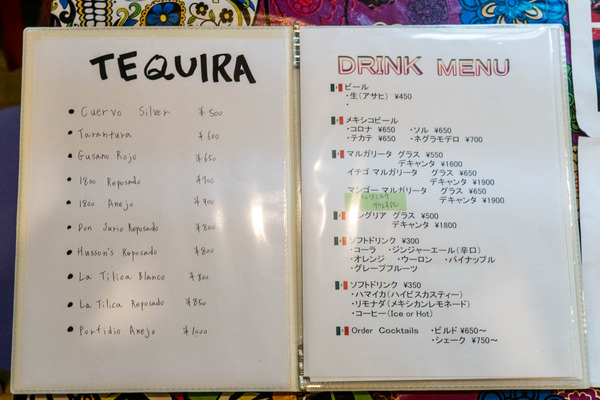 TEQUIRA
Cuervo Silver ¥500
Tarantura ¥600
Gusano Rojo ¥650
1800 Reposado ¥700
1800 Anejo ¥900
Don Jurio Reposado ¥800
Husson's Reposado ¥800
La Tilica Blanco ¥800
La Tilica Reposado ¥850
Porfidio Anejo ¥1000
DRINK MENU
ビール
・生(アサヒ) ¥450
・
メキシコビール
・コロナ ¥650 ・ソル ¥650
・テカテ ¥650 ・ネグラモデロ ¥700
マルガリータ グラス ¥550
デキャンタ ¥1600
イチゴ マルガリータ グラス ¥650
デキャンタ ¥1900
マンゴー マルガリータ グラス ¥650
デキャンタ ¥1900
ングリア グラス ¥500
デキャンタ ¥1800
ソフトドリンク ¥300
・コーラ ・ジンジャーエール(辛口)
・オレンジ ・ウーロン ・パイナップル
・グレープフルーツ
ソフトドリンク ¥350
・ハマイカ(ハイビスカスティー)
・リモナダ(メキシカンレモネード)
・コーヒー(Ice or Hot)
Order Cocktails ・ビルド ¥650～
・シェーク ¥750～